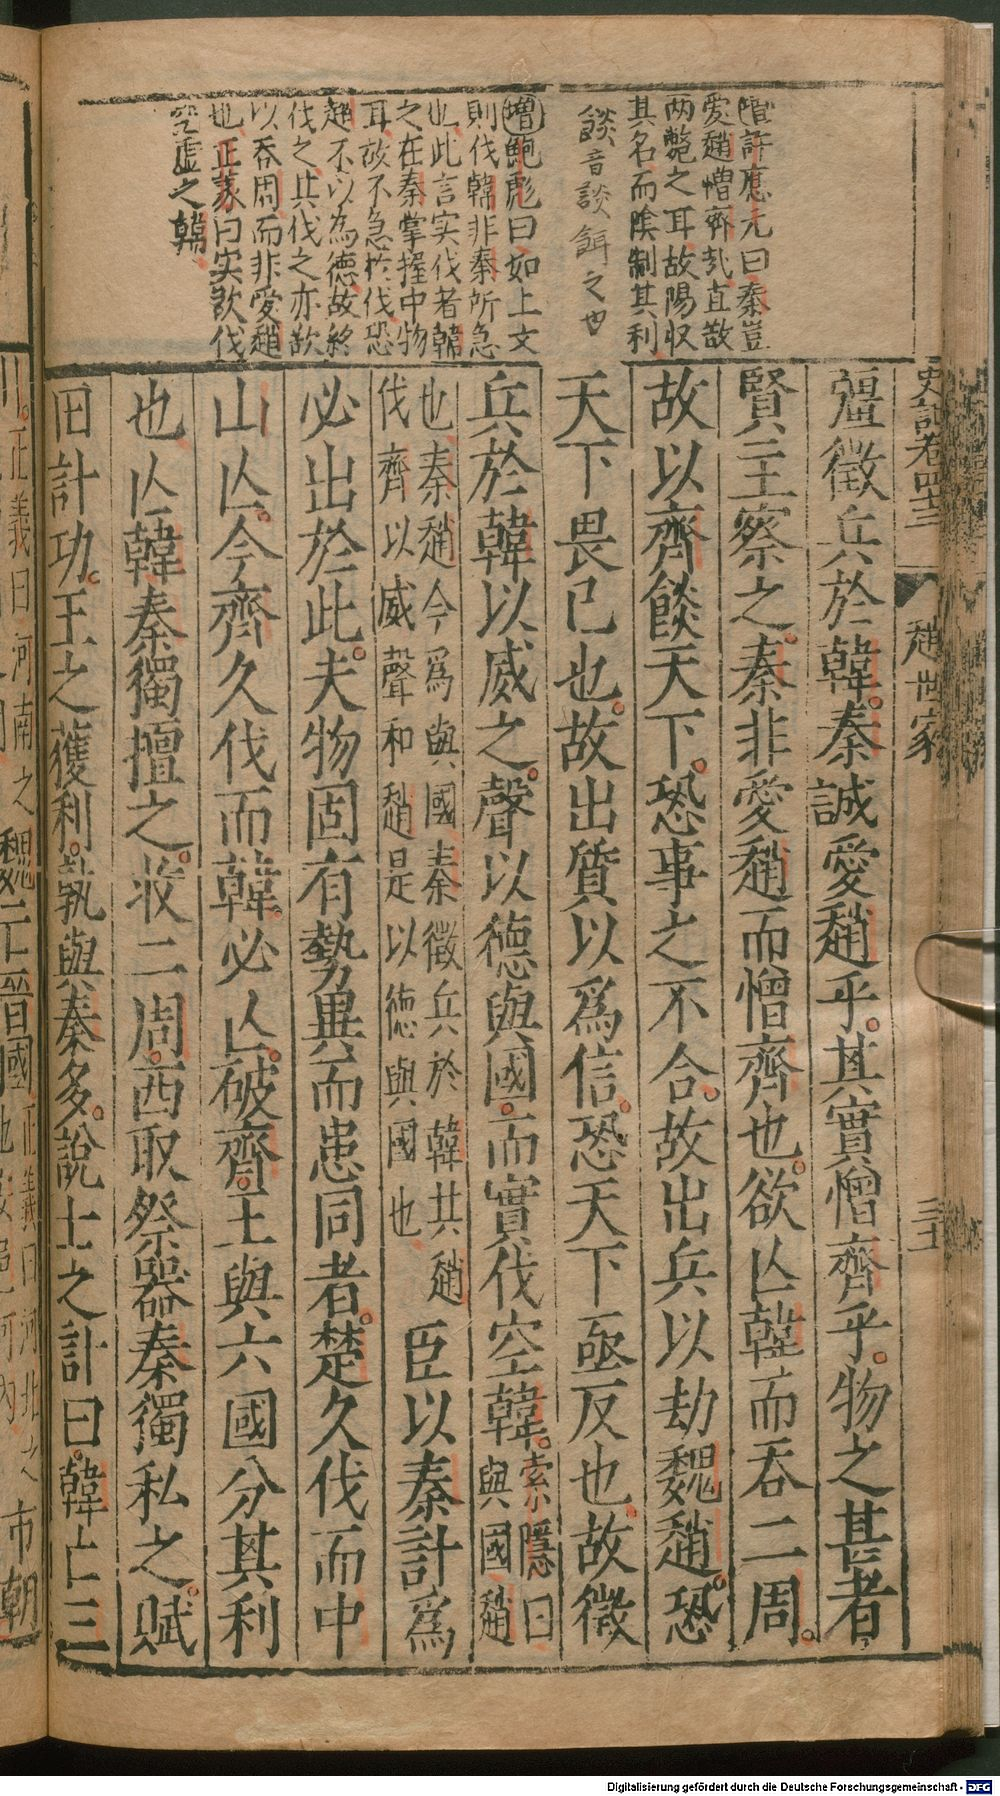 史記卷四三
趙世家
彊徵兵於韓秦誠愛趙乎其實憎齊乎物之甚者
賢主察之秦非愛趙而憎齊也欲亾韓而吞二周
故以齊餤天下恐事之不合故出兵以劫魏趙恐
天下畏已也故出質以爲信恐天下亟反也故徵
兵於韓以威之聲以德與國而實伐空韓索隱曰
與國趙
也秦趙今爲與國秦徵兵於韓共趙
伐齊以威聲和趙是以德與國也
臣以秦計爲
必出於此夫物固有勢異而患同者楚久伐而中
山亾今齊久伐而韓必亾破齊王與六國分其利
也亾韓秦獨擅之收二周西取祭器秦獨私之賦
田計功王之獲利孰與秦多說士之計曰韓亡三
增許應元曰秦豈
愛趙憎齊哉直欲
兩斃之耳故陽収
其名而陰制其利
餤音談餌之也
增鮑彪曰如上文
則伐韓非秦所急
也此言实伐者韓
之在秦掌握中物
耳故不急於伐恐
趙不以為德故終
伐之其伐之亦欲
以吞周而非愛趙
也正義曰实欲伐
空虛之韓
正義曰河南之
魏
晉國
正義曰河北之
市朝
Digitalisierung gefördert durch die Deutsche Forschungsgemeinschaft - DFG